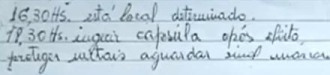 16,30 Hs. está local determinado.
18,30 Hs. ingerir capsúla após efeito,
proteger metais aguardar sinal mascara